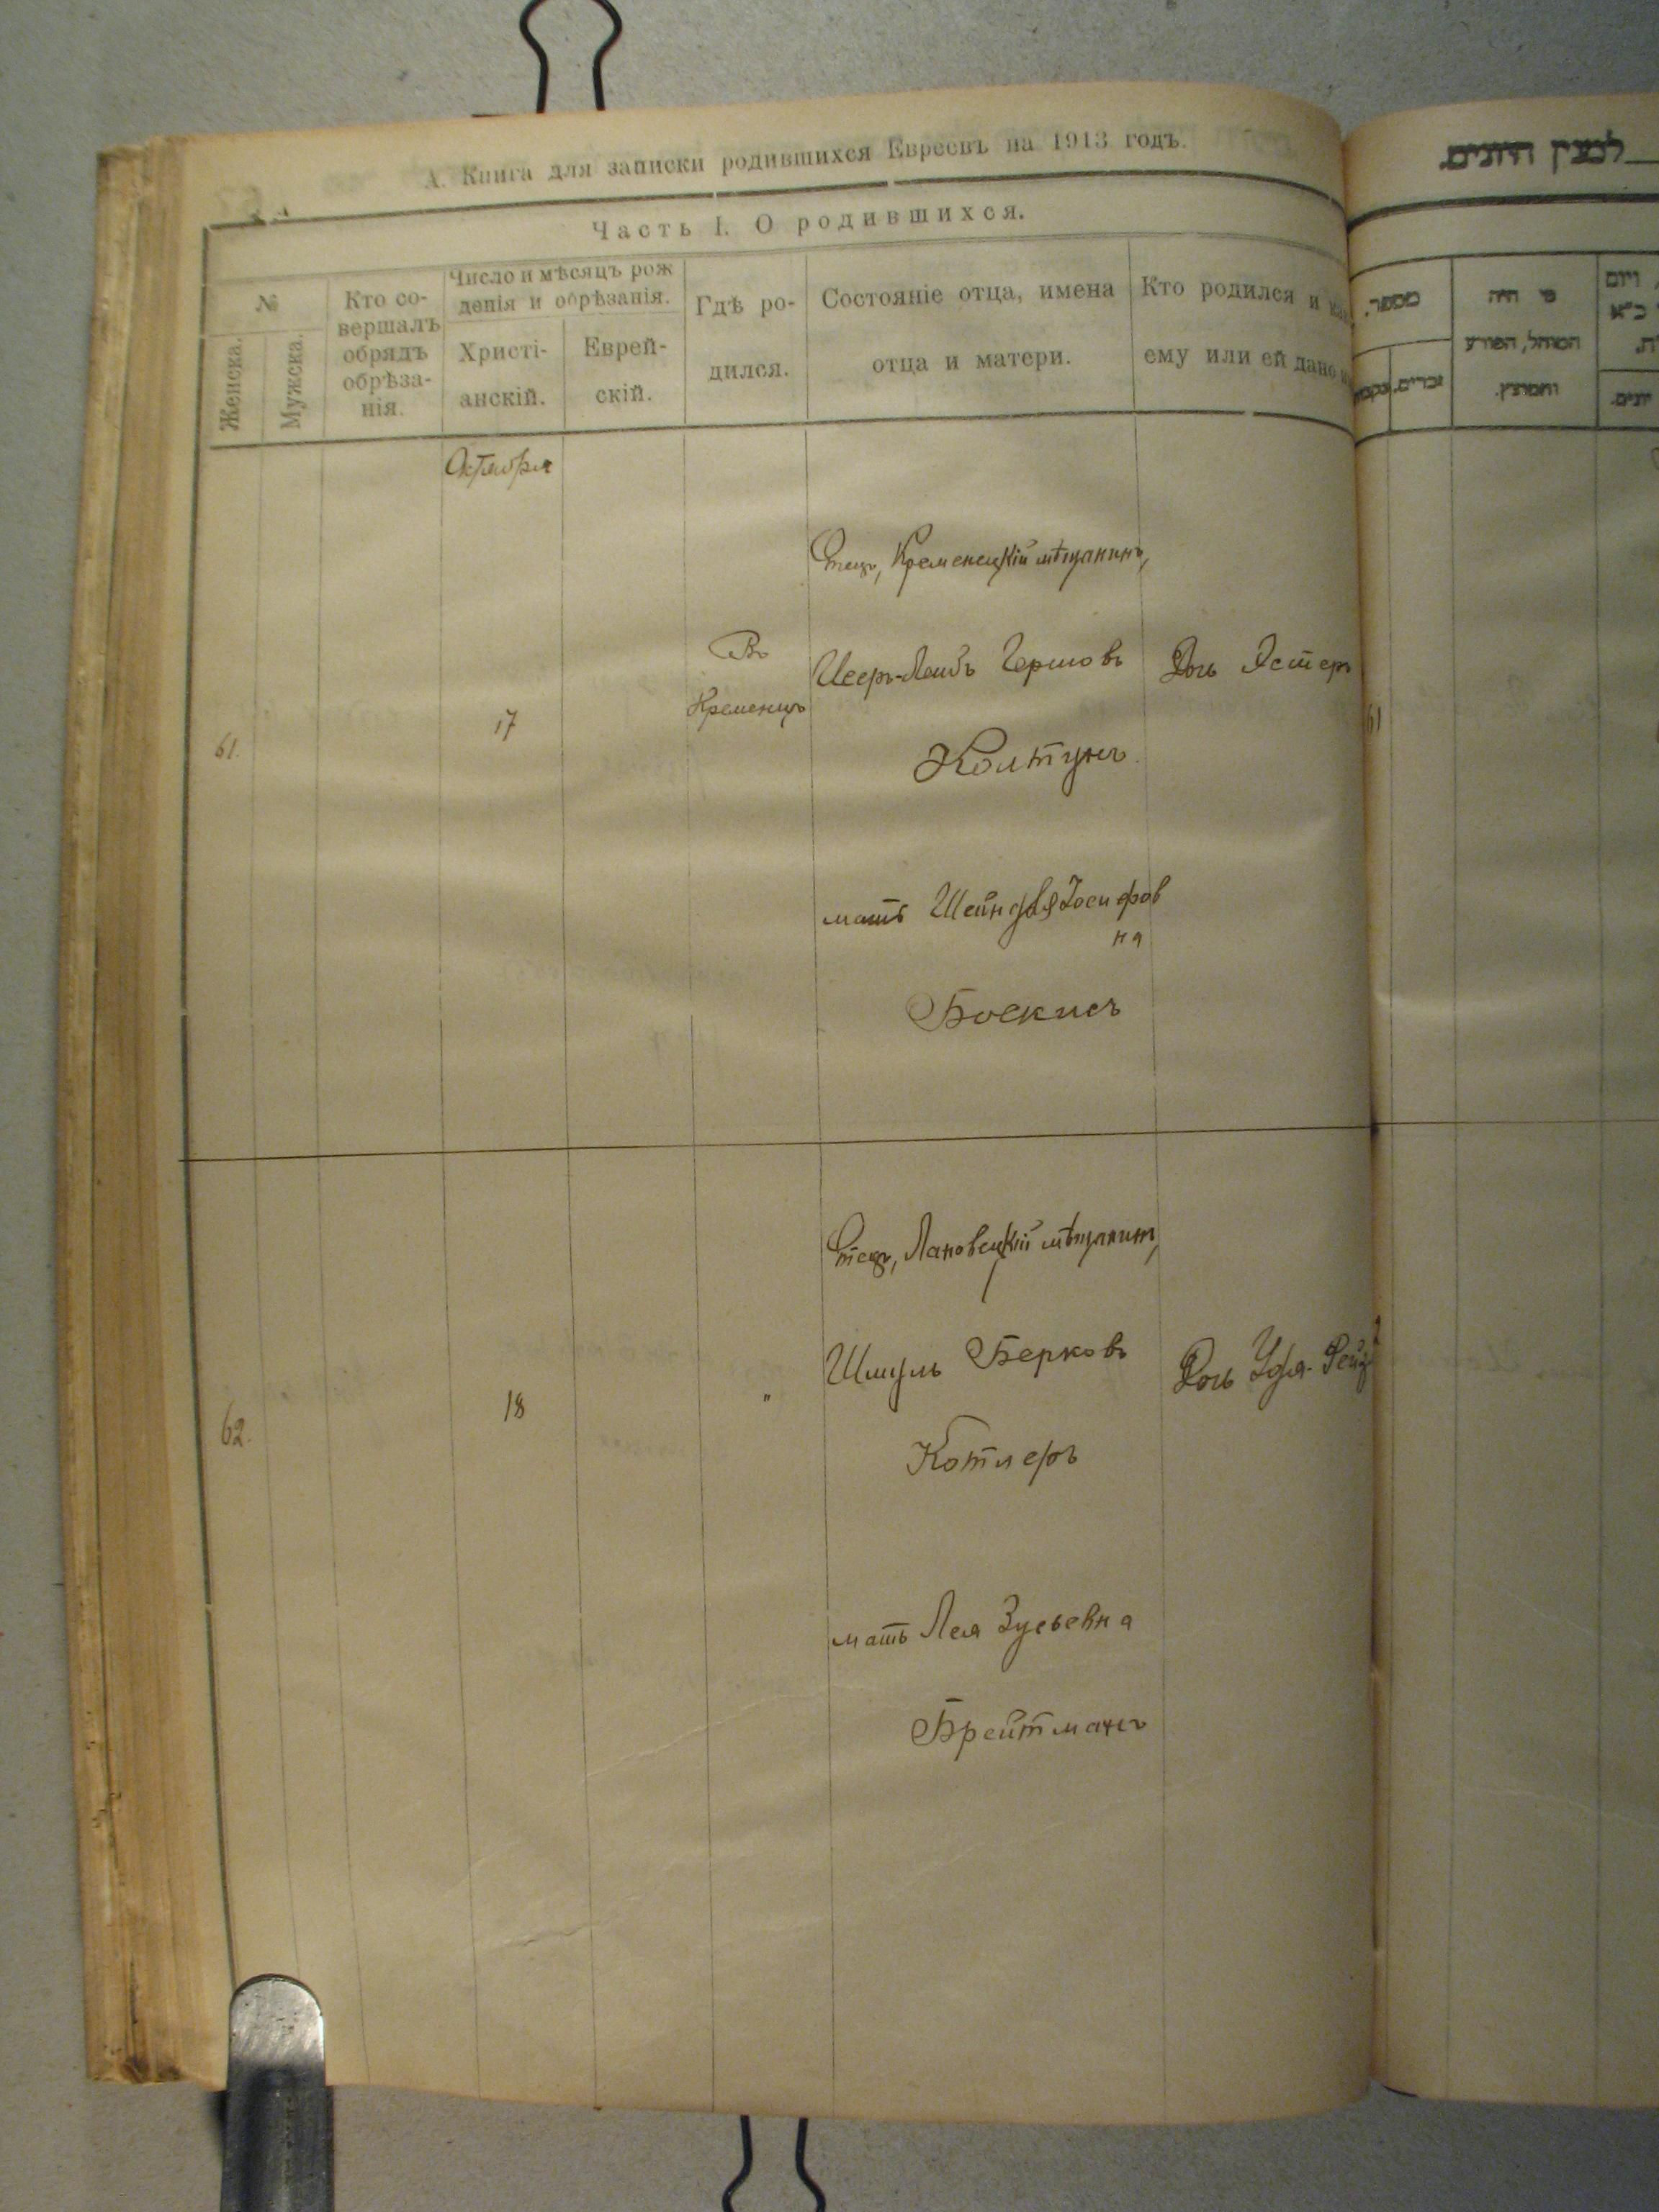 А. Книга для записки родившихся Евреевъ на 1913 годъ.
Часть I. О родившихся.
№
Женска.
Мужска.
Кто со-
вершалъ
обрядъ
обрѣза-
нія.
Число и мѣсяцъ рож
денія и обрѣзанія.
Христі-
анскій.
Еврей-
скій.
Гдѣ ро-
дился.
Состояніе отца, имена
отца и матери.
Кто родился и
ему или ей дано
Октября
61.
17
Въ
Кременцѣ
Отецъ, Кременецкій мѣщанинъ,
Исеръ-Лейбъ Гершовъ
Колтунъ
мать Шейндля Іосифов
на
Боскисъ
Дочь Эстеръ
62.
18
"
Отецъ, Лановецкій мѣщанинъ,
Шмуль Берковъ
Котлеръ
мать Лея Зусьевна
Брейтманъ
Дочь Удля-Рейз
מספר.
זכרים.
מי היה
המוהל, הפורע
והמוצץ.
61